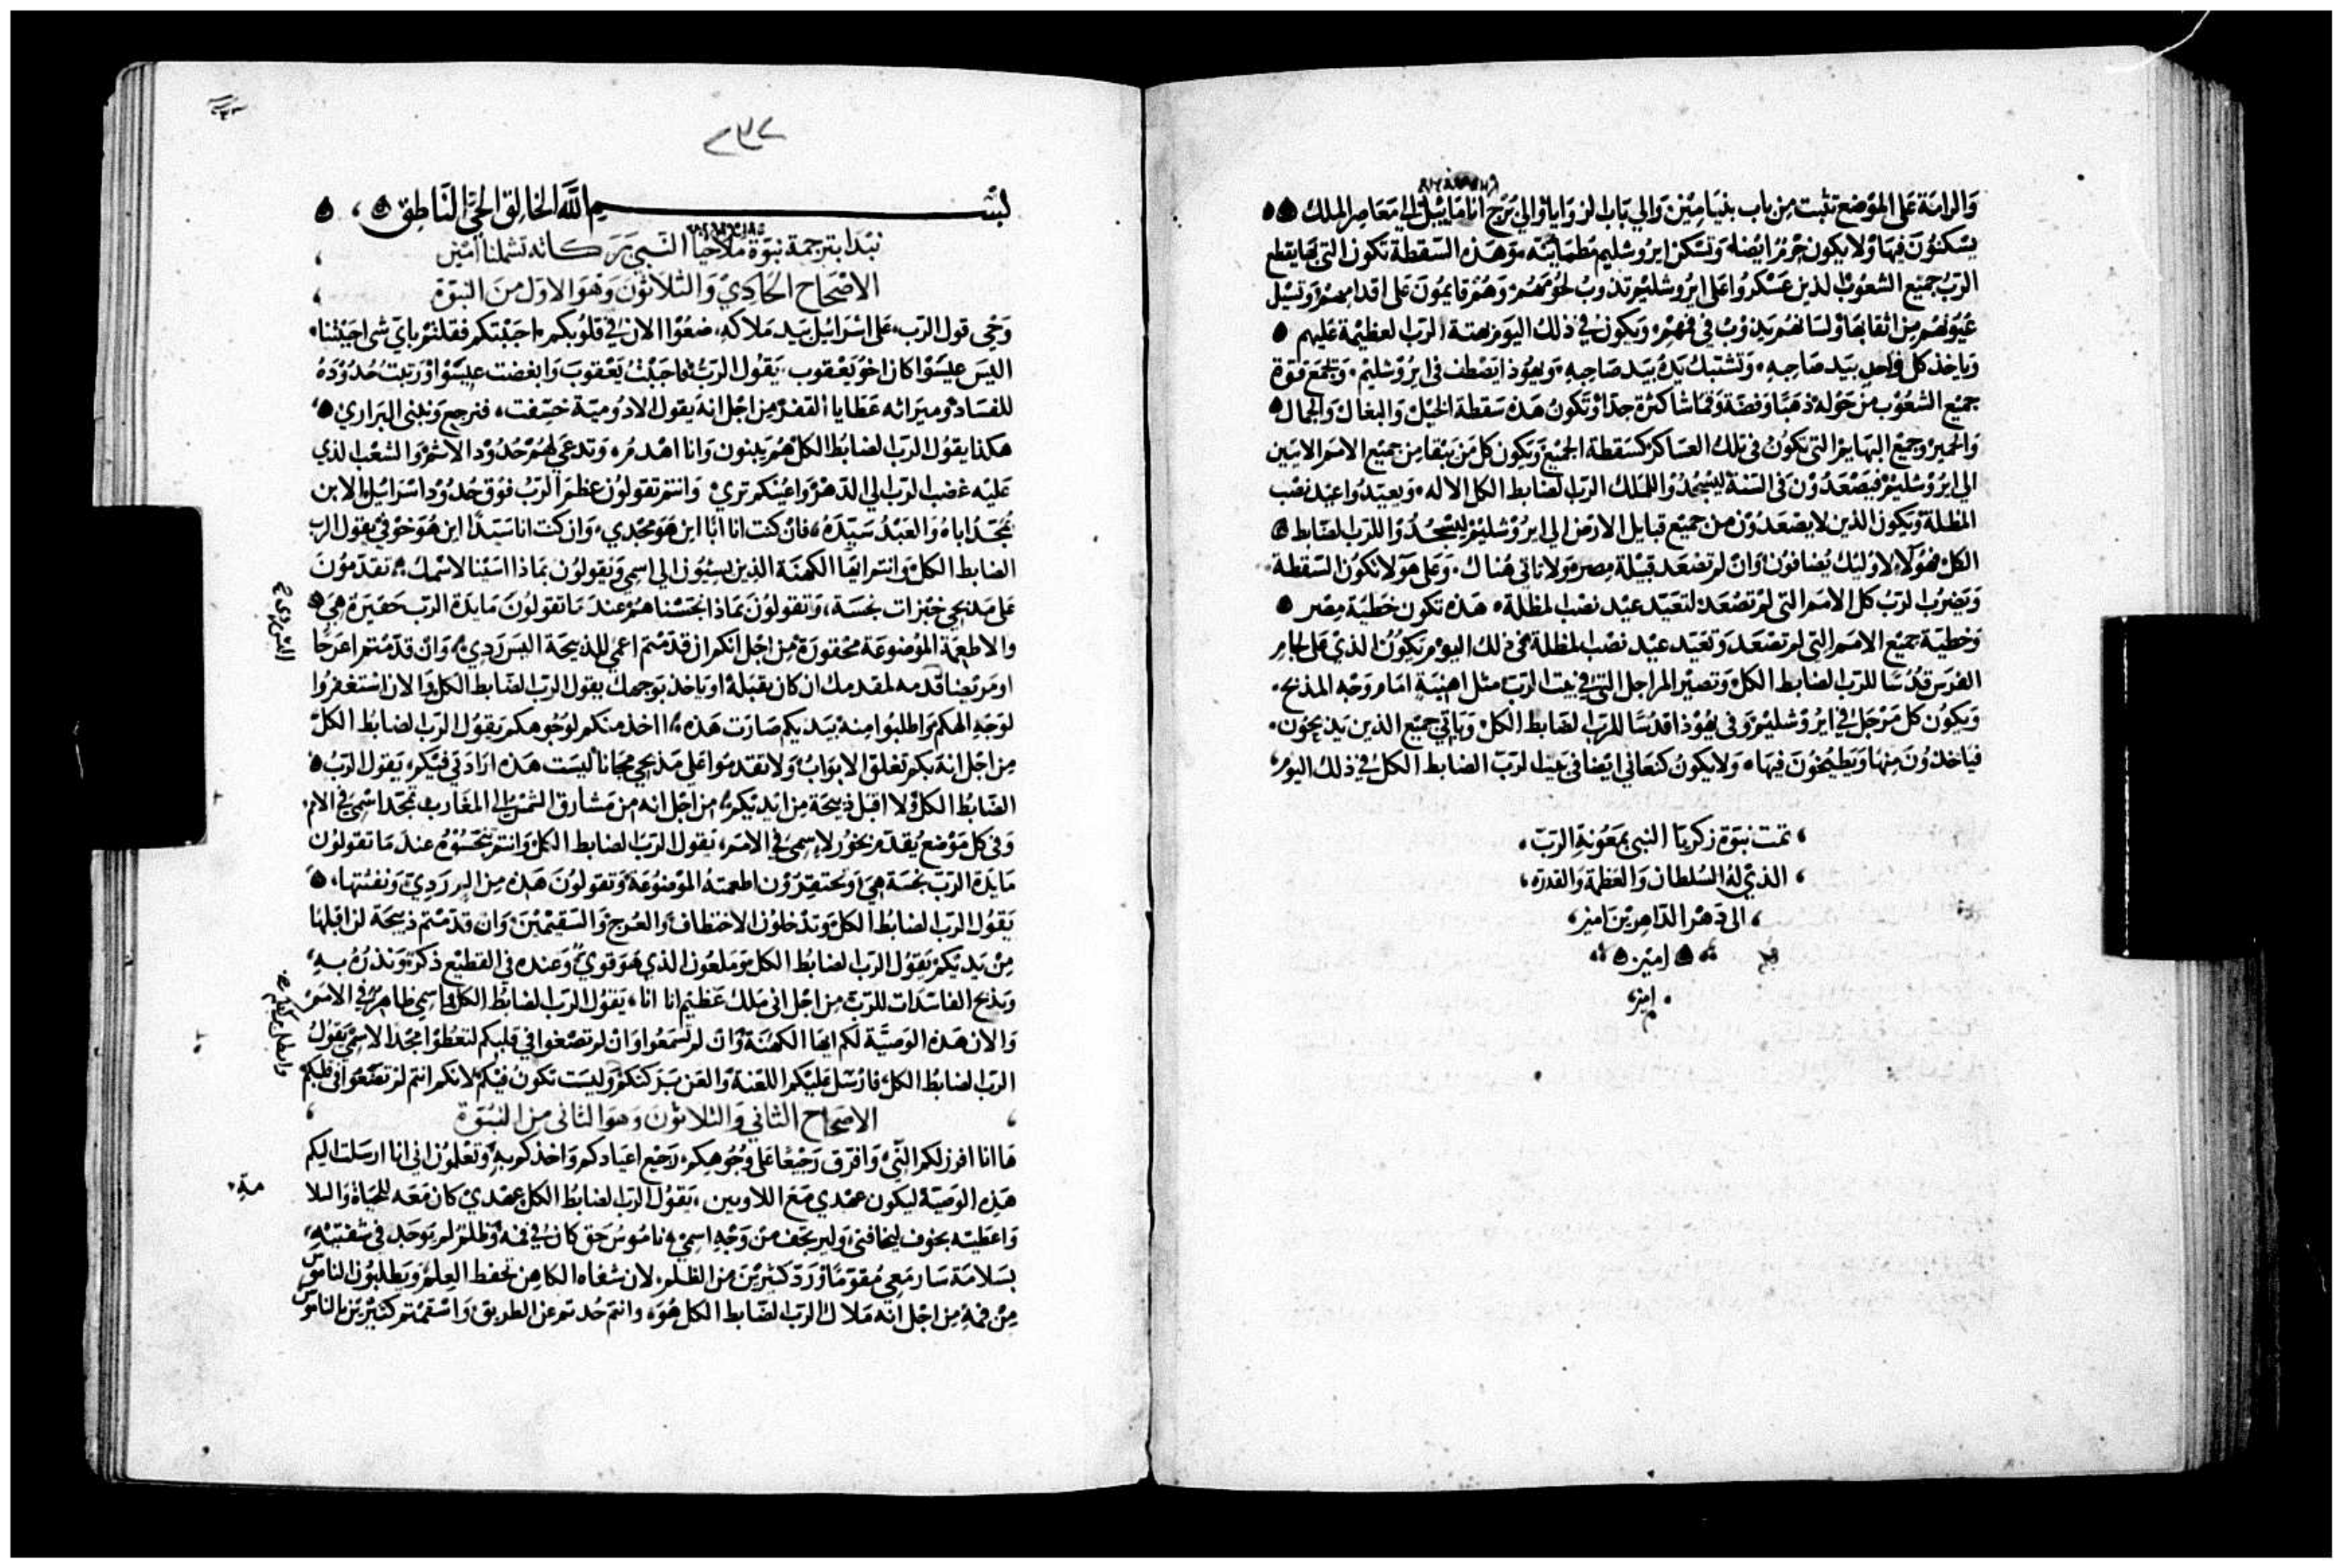 والرامة على الموضع تثبت من باب بنيامين والي باب الزوايا والي برج انامايىل الي معاصر الملك
يسكنون فيها ولا يكون حرم ايضا وتسكن ايروشليم مطمانة وهذه السقطة تكون التي بها يقطع
الرب جميع الشعوب الذين عسكروا على ايروشليم تذوب لحومهم وهم قايمون على اقدامهم وتسيل
عيونهم من اثقابها ولسانهم يذوب في فمهم ويكون في ذلك اليوم بهتة الرب العظيمة عليهم
وياخذ كل واحد بيد صاحبه وتشتبك يده بيد صاحبه ويهوذا يصطف في ايروشليم وتجمع قوة
جميع الشعوب من حوله ذهبا وفضة وقماشا كثرة جدا وتكون هذه سقطة الخيل والبغال والجمال
والحمير وجميع البهايم التي تكون في تلك العساكر كسقطة الجميع ويكون كل من يبقا من جميع الامم الاتيين
الي ايروشليم فيصعدون في السنة ليسجدوا للملك الرب الضابط الكل الاله ويعيدوا عيد نصب
المظلة ويكون الذين لا يصعدون من جميع قبايل الارض الي ايروشليم ليسجدوا للرب الضابط
الكل فهولاء لاوليك يضافون وان لم تصعد قبيلة مصر ولا تاتي هناك وعلى هولا تكون السقطة
ويضرب الرب كل الامم التي لم تصعد لتعيد عيد نصب المظلة هذه تكون خطية مصر
وخطية جميع الامم التي لم تصعد وتعيد عيد نصب المظلة في ذلك اليوم يكون الذي على لجام
الفرس قدسا للرب الضابط الكل وتصير المراجل التي في بيت الرب مثل اهنية امام وجه المذبح
ويكون كل مرجل في ايروشليم وفي يهوذا قدسا للرب الضابط الكل وياتي جميع الذين يذبحون
فياخذون منها ويطبخون فيها ولا يكون كنعاني ايضا في بيت الرب الضابط الكل في ذلك اليوم
تمت نبوة زكريا النبي بمعونة الرب
الذي له السلطان والعظمة والقدرة
الي دهر الداهرين امين
امين
امين
بسم الله الخالق الحي الناطق
نبدا بترجمة نبوة ملاخيا النبي بركاته تشملنا امين
الاصحاح الحادي والثلاثون وهو الاول من النبوة
وحي قول الرب على اسراييل بيد ملاكه ضعوا الان في قلوبكم احببتكم فقلتم باي شي احببتنا
اليس عيسوا كان اخو يعقوب يقول الرب فاحببت يعقوب وابغضت عيسوا ورتبت حدوده
للفساد وميراثه عطايا القفر من اجل انه يقول الادومية خسفت فنرجع ونبني البراري
هكذا يقول الرب الضابط الكل هم يبنون وانا اهدم وتدعي لهم حدود الاثم والشعب الذي
عليه غضب الرب الي الدهر واعينكم تري وانتم تقولون عظم الرب فوق حدود اسراييل الابن
يمجد اباه والعبد سيده فان كنت انا ابا اين هو مجدي وان كنت انا سيدا اين هو خوفي يقول الرب
الضابط الكل وانتم ايها الكهنة الذين يسيون الي اسمي وتقولون بماذا اسينا لاسمك تقدمون
على مذبحي خبزات نجسة وتقولون بماذا نجسناهم عند ما تقولون مايدة الرب حقيرة هي
والاطعمة الموضوعة محقورة من اجل انكم ان قدمتم اعمي للذبيحة اليس ردي وان قدمتم اعرجا
او مريضا قدمه لمقدمك ان كان يقبله او ياخذ بوجهك يقول الرب الضابط الكل والان استغفروا
لوجه الهكم واطلبوا منه بيديكم صارت هذه ااخذ منكم لوجوهكم يقول الرب الضابط الكل
من اجل انه بكم تغلق الابواب ولا تقدموا على مذبحي مجانا ليست هذه ارادتي فيكم يقول الرب
الضابط الكل ولا اقبل ذبيحة من ايديكم من اجل انه من مشارق الشمس الي المغارب تمجد اسمي في الامم
وفي كل موضع يقدم بخور لاسمي في الامم يقول الرب الضابط الكل وانتم تنجسوه عند ما تقولون
مايدة الرب نجسة هي وتحتقرون اطعمته الموضوعة وتقولون هذه من ردي ونفثتها
يقول الرب الضابط الكل وتدخلون الاختطاف والعرج والسقيمين وان قدمتم ذبيحة لن اقبلها
من يديكم يقول الرب الضابط الكل وملعون الذي هو قوي وعنده في القطيع ذكر ونذره به
ويذبح الفاسدات للرب من اجل اني ملك عظيم انا يقول الرب الضابط الكل واسمي ظاهر في الامم
والان هذه الوصية لكم ايها الكهنة وان لم تسمعوا وان لم تصغوا في قلبكم لتعطوا مجدا لاسمي يقول
الرب الضابط الكل فارسل عليكم اللعنة والعن بركتكم وليست تكون فيكم لانكم انتم لم تضعوا في قلبكم
الاصحاح الثاني والثلاثون وهو الثاني من النبوة
ها انا افرز لكم وافرق رجيعا على وجوهكم رجيع اعيادكم واخذكم به وتعلمون اني انا ارسلت اليكم
هذه الوصية ليكون عهدي مع اللاويين يقول الرب الضابط الكل عهدي كان معه للحياة والسلا
مة
واعطيته بخوف ليخافني وليرتجف من وجه اسمي ناموس حق كان في فمه وظلم لم يوجد في شفتيه
بسلامة سار معي مقوما ورد كثيرين من الظلم لان شفاه الكاهن تحفظ العلم ويطلبون الناموس
من فمه من اجل انه ملاك الرب الضابط الكل هو وانتم حدتم عن الطريق واسقمتم كثيرين بالناموس